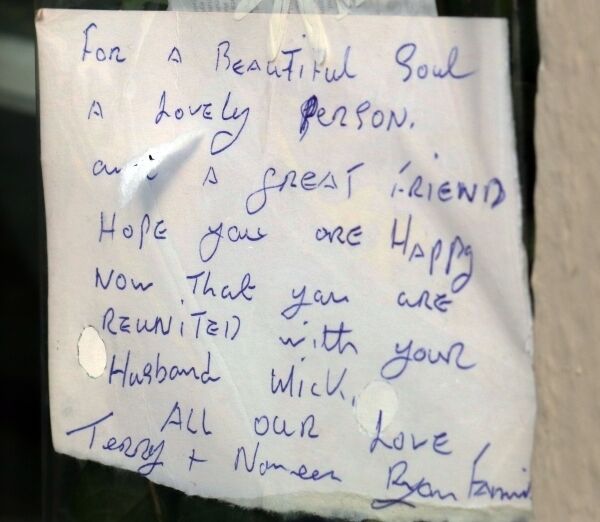 For A Beautiful Soul
A Lovely Person.
and A great Friend
Hope you are Happy
Now that you are
REUNITED with your
Husband Mick.
All our Love
Terry + Noreen Ryan Family